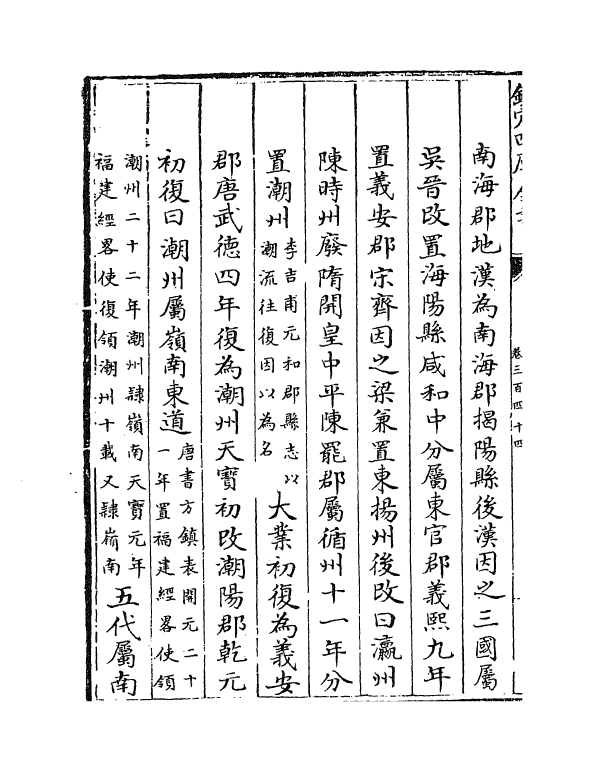 南海郡地漢為南海郡揭陽縣後漢因之三國屬
吳晉改置海陽縣咸和中分屬東官郡義熙九年
置義安郡宋齊因之梁兼置東揚州後改曰瀛州
陳時州廢隋開皇中平陳罷郡屬循州十一年分
置潮州李吉甫元和郡縣志以潮流往復因以為名大業初復為義安
郡唐武德四年復為潮州天寶初改潮陽郡乾元
初復曰潮州屬嶺南東道唐書方鎮表開元二十一年置福建經畧使領
潮州二十二年潮州隸嶺南天寶元年福建經畧使復領潮州十載又隸嶺南五代屬南
卷三百四十四